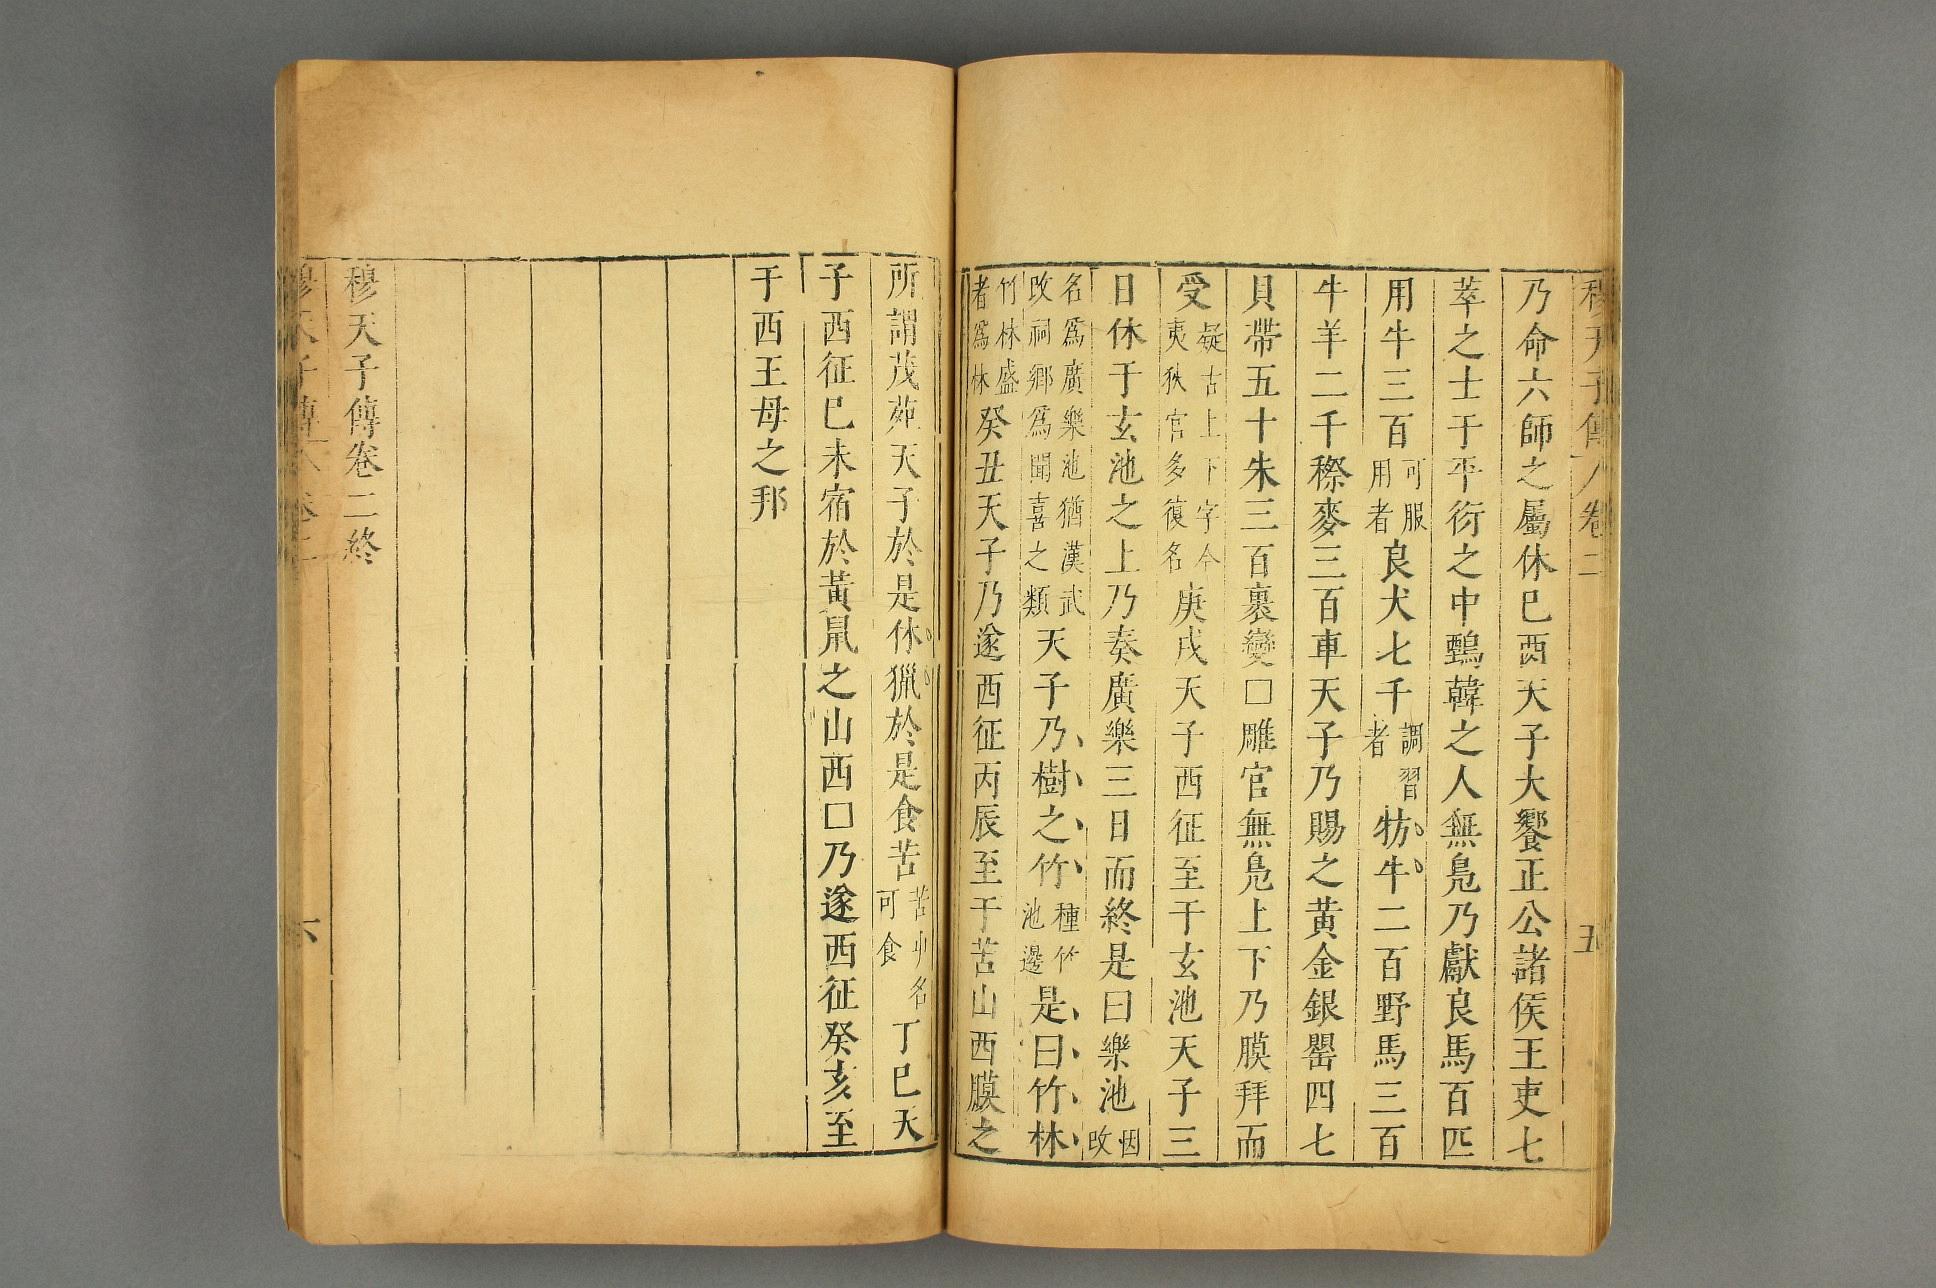 穆天子傳 卷二 五
乃命六師之屬休己酉天子大饗正公諸侯王吏七
萃之士于平衍之中鵐韓之人無鳧乃獻良馬百匹
用牛三百可服用者良犬七千調習者牥牛二百野馬三百
牛羊二千穄麥三百車天子乃賜之黃金銀罌四七
貝帶五十朱三百裹變□雕官無鳧上下乃膜拜而
受疑古上下字今夷狄官多復名庚戌天子西征至于玄池天子三
日休于玄池之上乃奏廣樂三日而終是曰樂池因改
名爲廣樂池猶漢武改祠鄉爲聞喜之類天子乃樹之竹種竹池邊是曰竹林
竹林盛者爲林癸丑天子乃遂西征丙辰至于苦山西膜之
所謂茂苑天子於是休獵於是食苦苦艸名可食丁巳天
子西征己未宿於黃鼠之山西□乃遂西征癸亥至
于西王母之邦
穆天子傳卷二終
穆天子傳 卷二 六